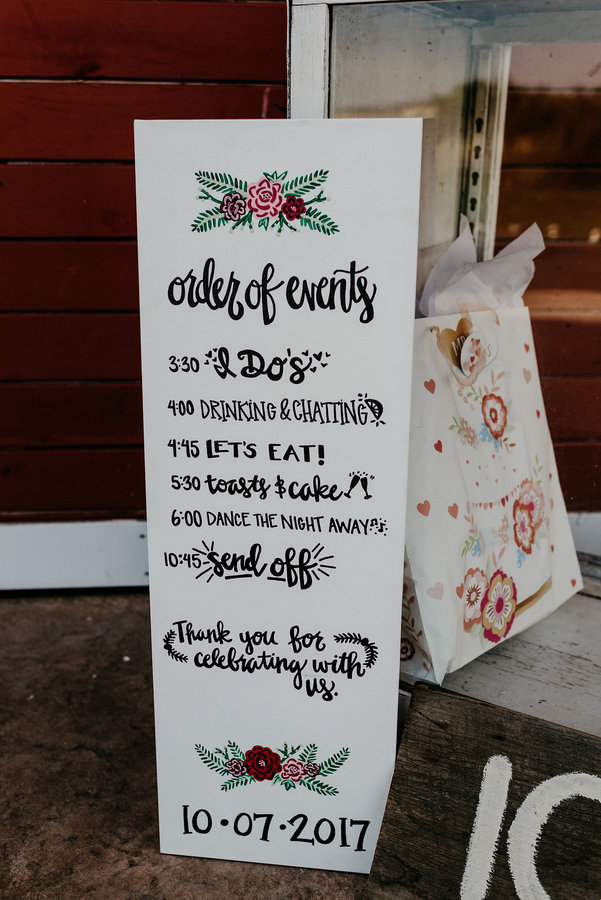 order of events
3:30 I Do's
4:00 DRINKING & CHATTING
4:45 LET'S EAT!
5:30 toasts & cake
6:00 DANCE THE NIGHT AWAY
10:45 send off
Thank you for
celebrating with
us.
10·07·2017
10